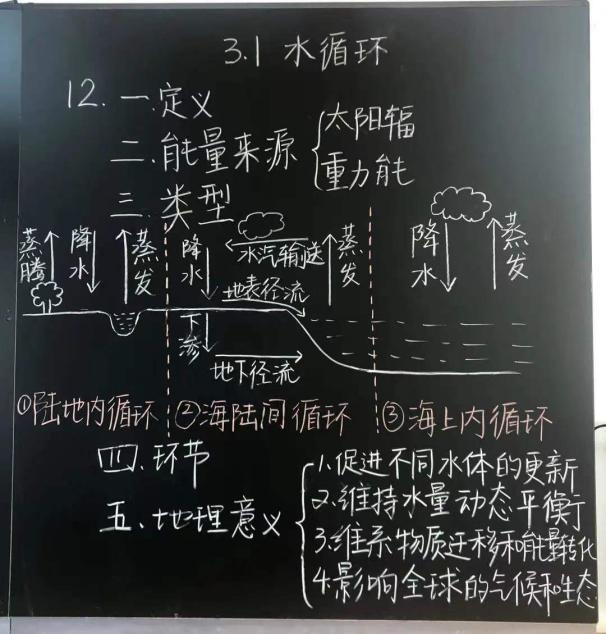 3.1 水循环
12. 一.定义
二.能量来源
太阳辐
重力能
三.类型
蒸腾
降水
蒸发
降水
水汽输送
地表径流
下渗
地下径流
蒸发
降水
蒸发
①陆地内循环
②海陆间循环
③海上内循环
四.环节
五.地理意义
1.促进不同水体的更新
2.维持水量动态平衡
3.维系物质迁移和能量转化
4.影响全球的气候和生态